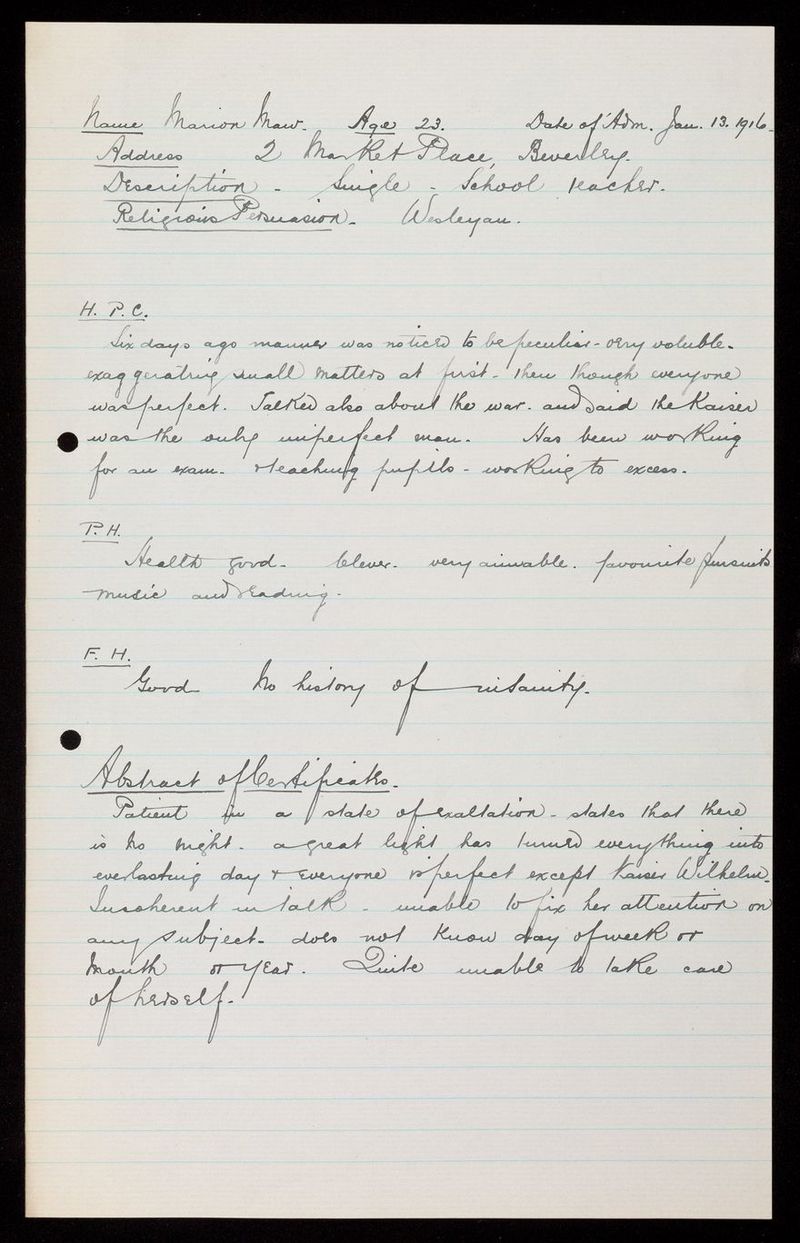 Name Marion Maw. Age 23. Date of Adm. Jan. 13. 1916.
Address 2 Market Place, Beverley.
Description - Single - School teacher.
Religious Persuasion - Wesleyan.
H. P. C.
Six days ago manner was noticed to be peculiar - very voluble -
exaggerating small matters at first - then though everyone
was perfect. Talked also about the war. and said the Kaiser
was the only imperfect man. Has been working
for an exam. & teaching pupils - working to excess.
P. H.
Health good - Clever - very amiable. favourite pursuits
music and reading -
F. H.
Good No history of insanity.
Abstract of Certificates.
Patient in a state of exaltation - states that there
is no night - a great light has turned everything into
everlasting day & everyone is perfect except Kaiser Wilhelm.
Incoherent in talk - unable to fix her attention on
any subject - does not know day of week or
month or year. Quite unable to take care
of herself.